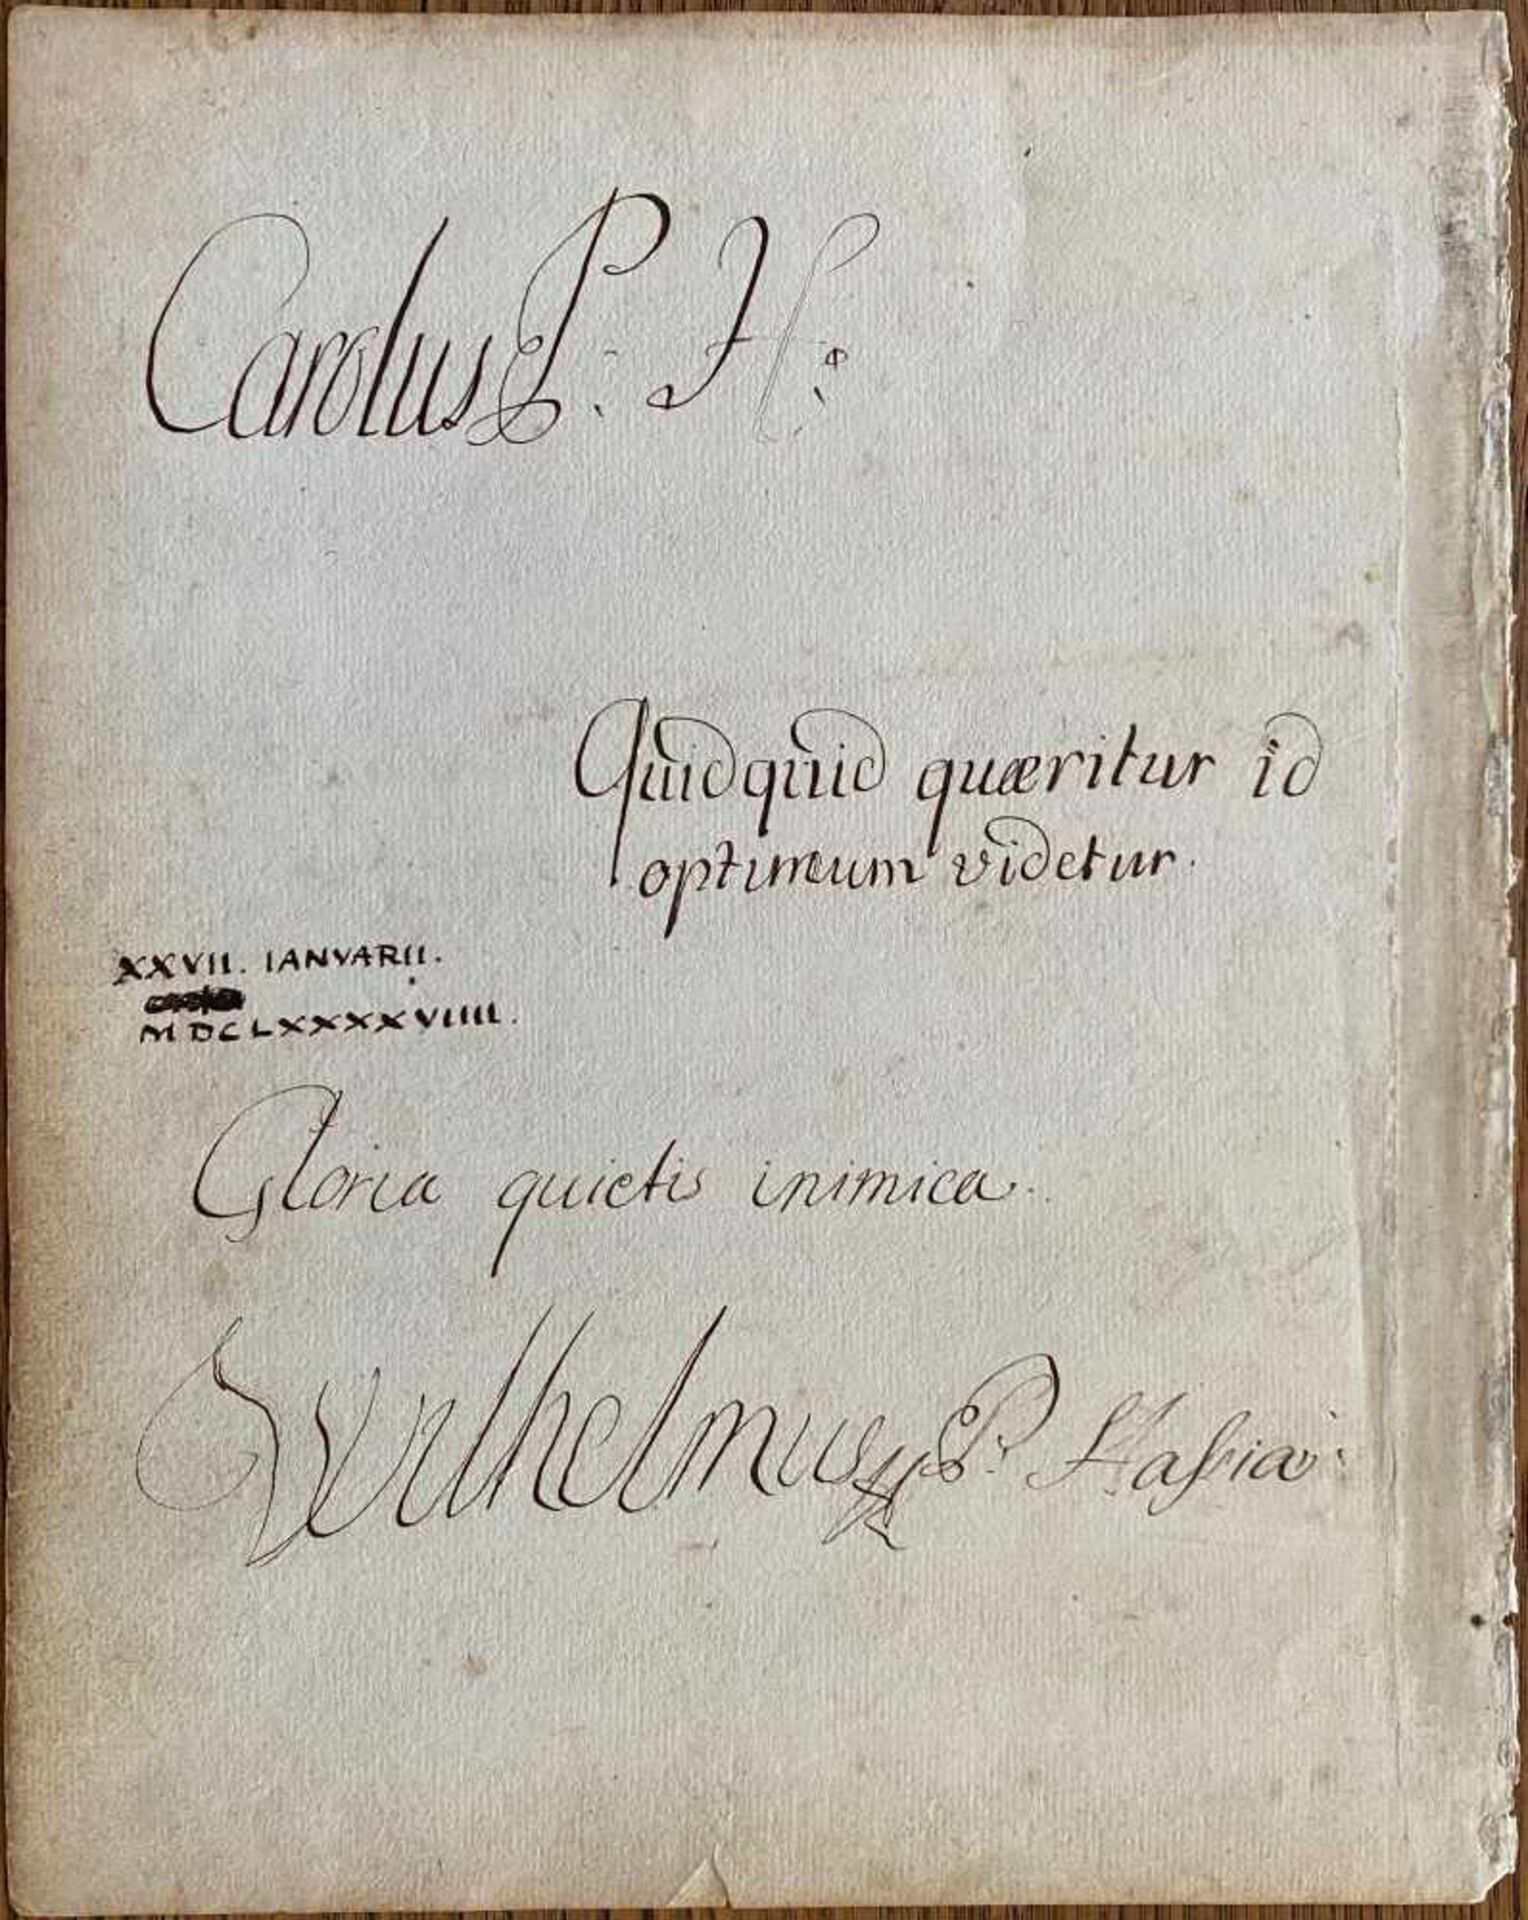 Carolus P: H:
Quidquid quæritur id
optimum videtur.
XXVII. IANVARII.
MDCLXXXXVIIII.
Gloria quietis inimica.
Wilhelmus P. Hassiæ.